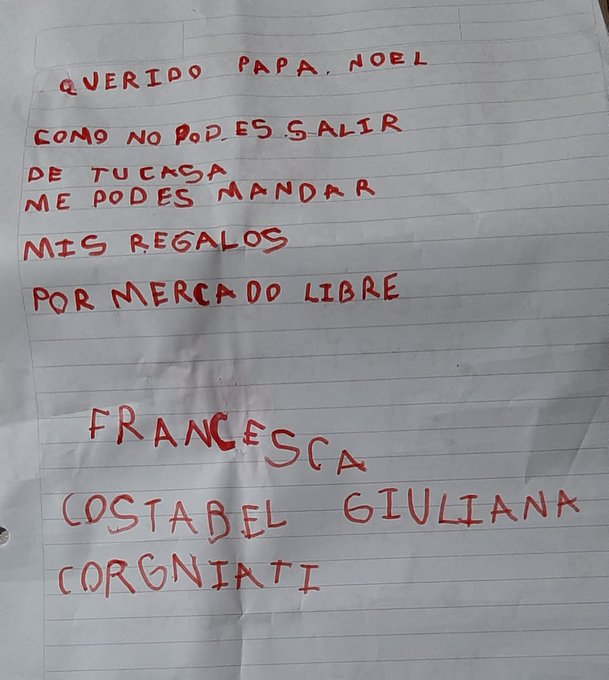 QUERIDO PAPA. NOEL
COMO NO PODES SALIR
DE TU CASA
ME PODES MANDAR
MIS REGALOS
POR MERCADO LIBRE
FRANCESCA
COSTABEL GIULIANA
CORGNIATI